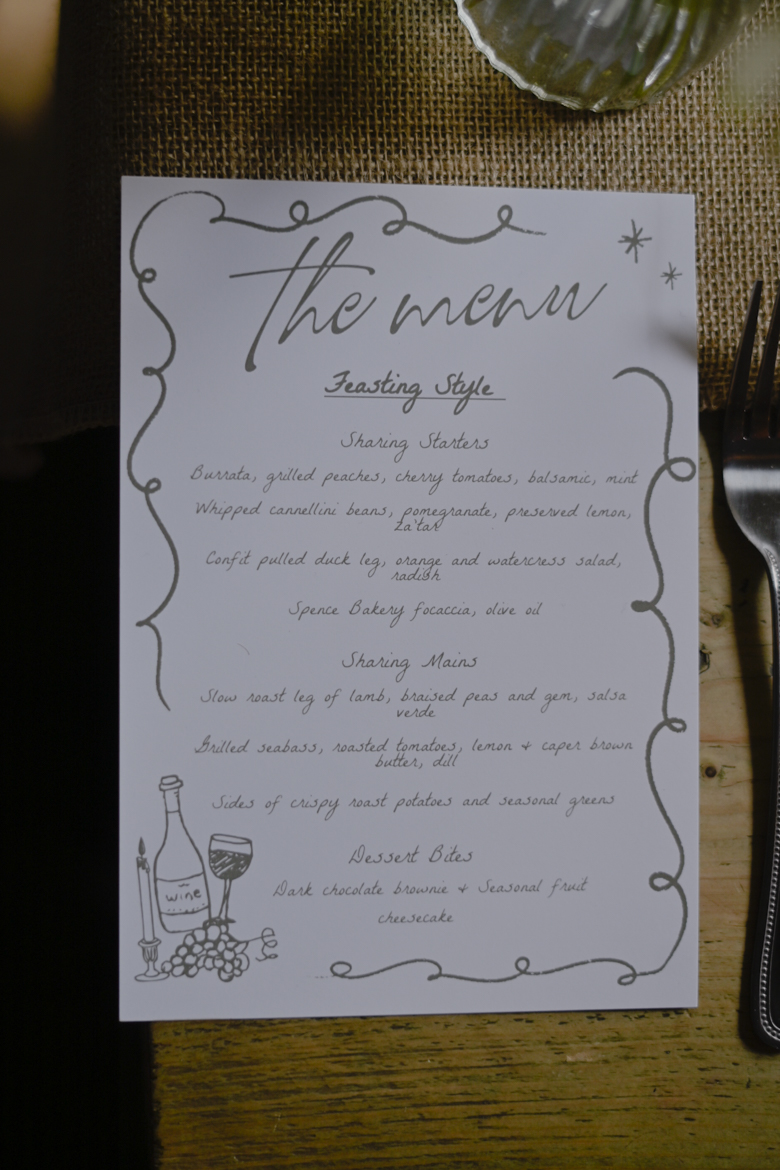 the menu
Feasting Style
Sharing Starters
Burrata, grilled peaches, cherry tomatoes, balsamic, mint
Whipped cannellini beans, pomegranate, preserved lemon,
za'tar
Confit pulled duck leg, orange and watercress salad,
radish
Spence Bakery focaccia, olive oil
Sharing Mains
Slow roast leg of lamb, braised peas and gem, salsa
verde
Grilled seabass, roasted tomatoes, lemon + caper brown
butter, dill
Sides of crispy roast potatoes and seasonal greens
Dessert Bites
Dark chocolate brownie + Seasonal fruit
cheesecake
wine